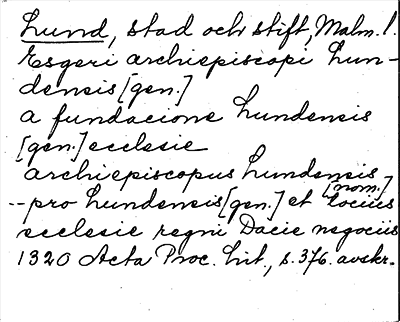 Lund, stad och stift, Malm. l.
Esgeri archiepiscopi Lun-
densis [gen.]
a fundacione Lundensis
[gen.] ecclesie
archiepiscopus Lundensis
[nom.]
-- pro Lundensis [gen.] et
ecclesie regni Dacie negociis
1320 Acta Proc. Lit., s. 376. avskr.